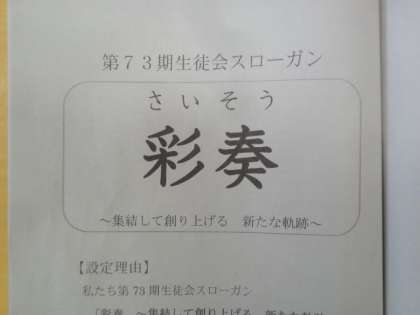 第７３期生徒会スローガン
さいそう
彩奏
～集結して創り上げる　新たな軌跡～
【設定理由】
私たち第 73 期生徒会スローガン
「彩奏　～集結して創り上げる　新たな